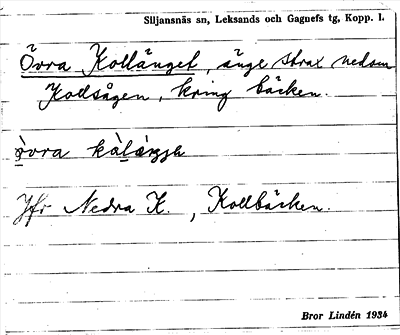 Siljansnäs sn, Leksands och Gagnefs tg, Kopp. l.
Övra Kollänget, änge strax nedom
Kollsågen, kring bäcken.
òvra
Jfr Nedra K., Kollbäcken.
Bror Lindén 1934